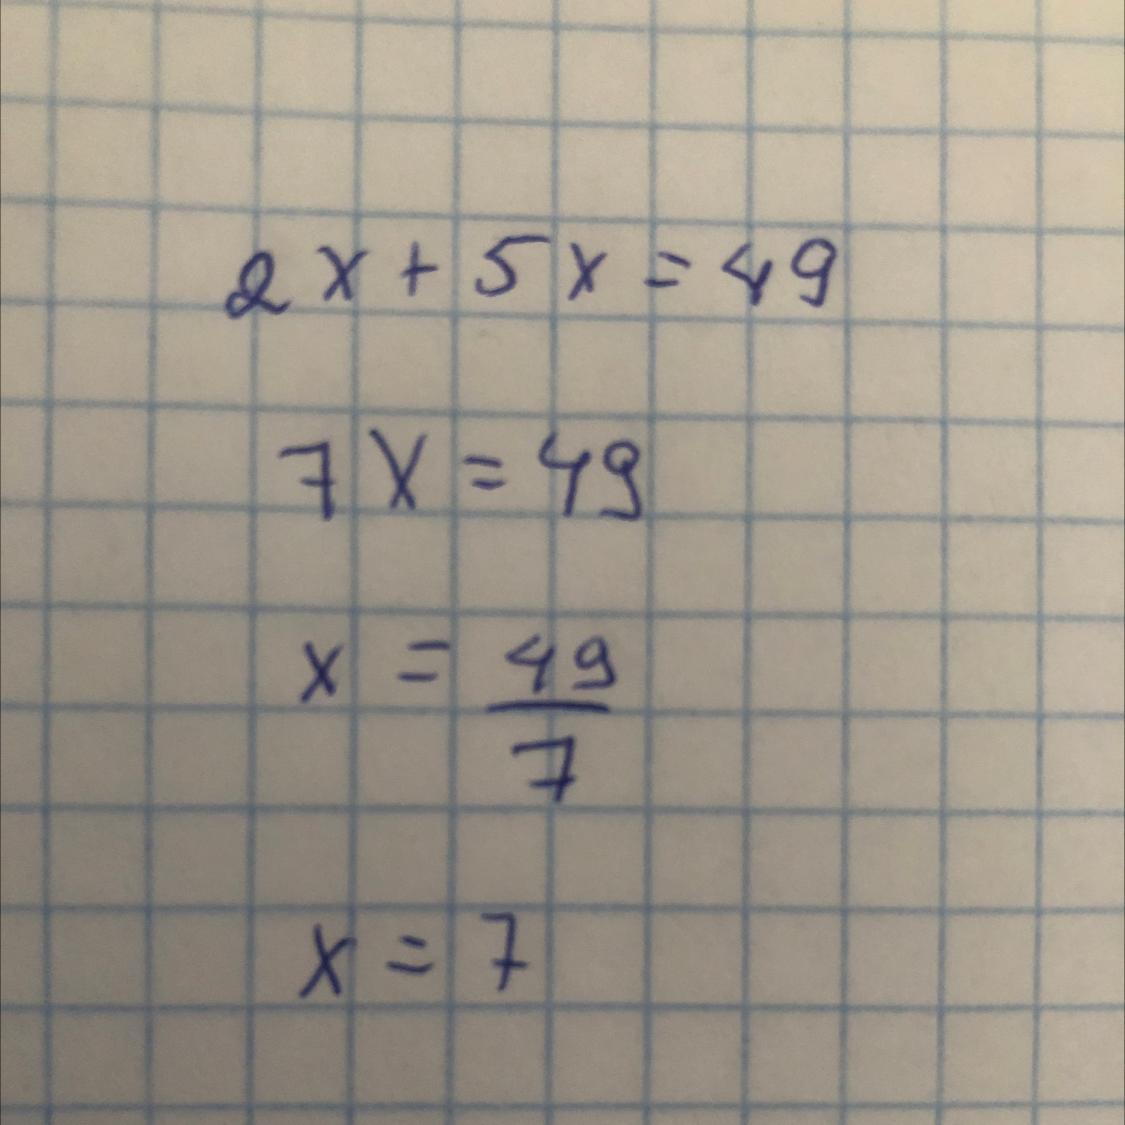 2x + 5x = 49
7x = 49
x = 49/7
x = 7